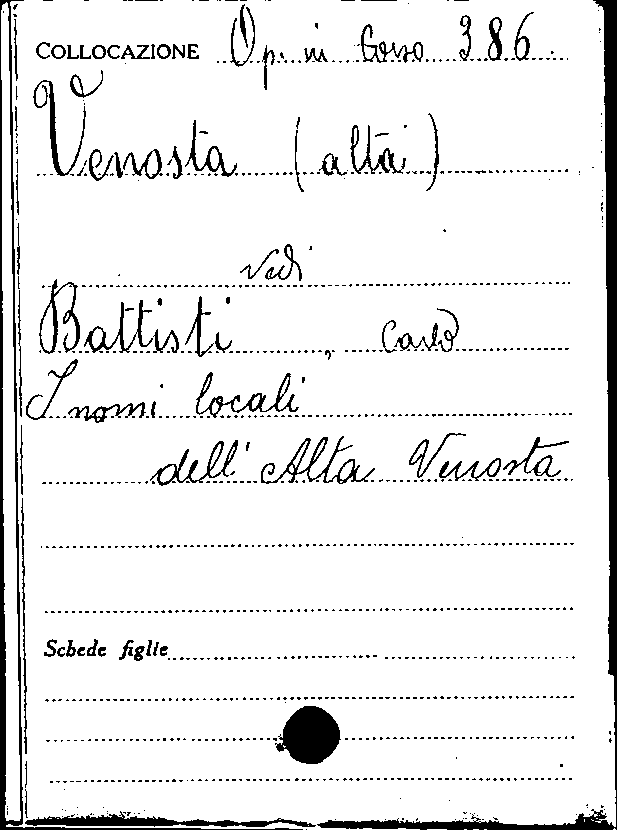 COLLOCAZIONE Op. in Corso 386.
Venosta (alta)
Vedi
Battisti, Carlo
I nomi locali
dell'Alta Venosta
Schede figlie